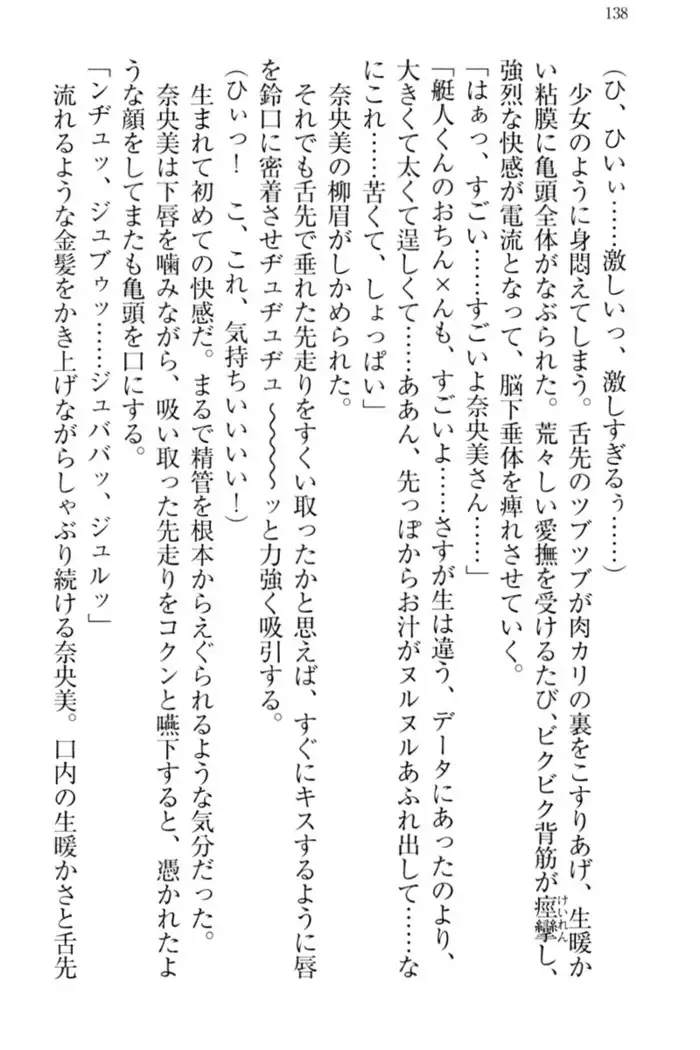 138
（ひ、ひいぃ……激しいっ、激しすぎるぅ……）
　少女のように身悶えてしまう。舌先のツブツブが肉カリの裏をこすりあげ、生暖か
い粘膜に亀頭全体がなぶられた。荒々しい愛撫を受けるたび、ビクビク背筋が痙攣し、
けいれん
強烈な快感が電流となって、脳下垂体を痺れさせていく。
「はぁっ、すごい……すごいよ奈央美さん……」
「艇人くんのおちん×んも、すごいよ……さすが生は違う、データにあったのより、
大きくて太くて逞しくて……ああん、先っぽからお汁がヌルヌルあふれ出して……な
にこれ……苦くて、しょっぱい」
　奈央美の柳眉がしかめられた。
　それでも舌先で垂れた先走りをすくい取ったかと思えば、すぐにキスするように唇
を鈴口に密着させヂュヂュヂュ～～～～ッと力強く吸引する。
（ひぃっ！　こ、これ、気持ちいいいい！）
　生まれて初めての快感だ。まるで精管を根本からえぐられるような気分だった。
　奈央美は下唇を噛みながら、吸い取った先走りをコクンと嚥下すると、憑かれたよ
うな顔をしてまたも亀頭を口にする。
「ンヂュッ、ジュブゥッ……ジュババッ、ジュルッ」
　流れるような金髪をかき上げながらしゃぶり続ける奈央美。口内の生暖かさと舌先